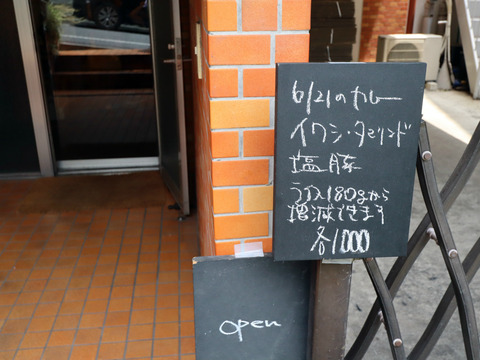 6/21のカレー
イワシ・タマリンド
塩豚
ライス180gから
増減できます
各1000
open